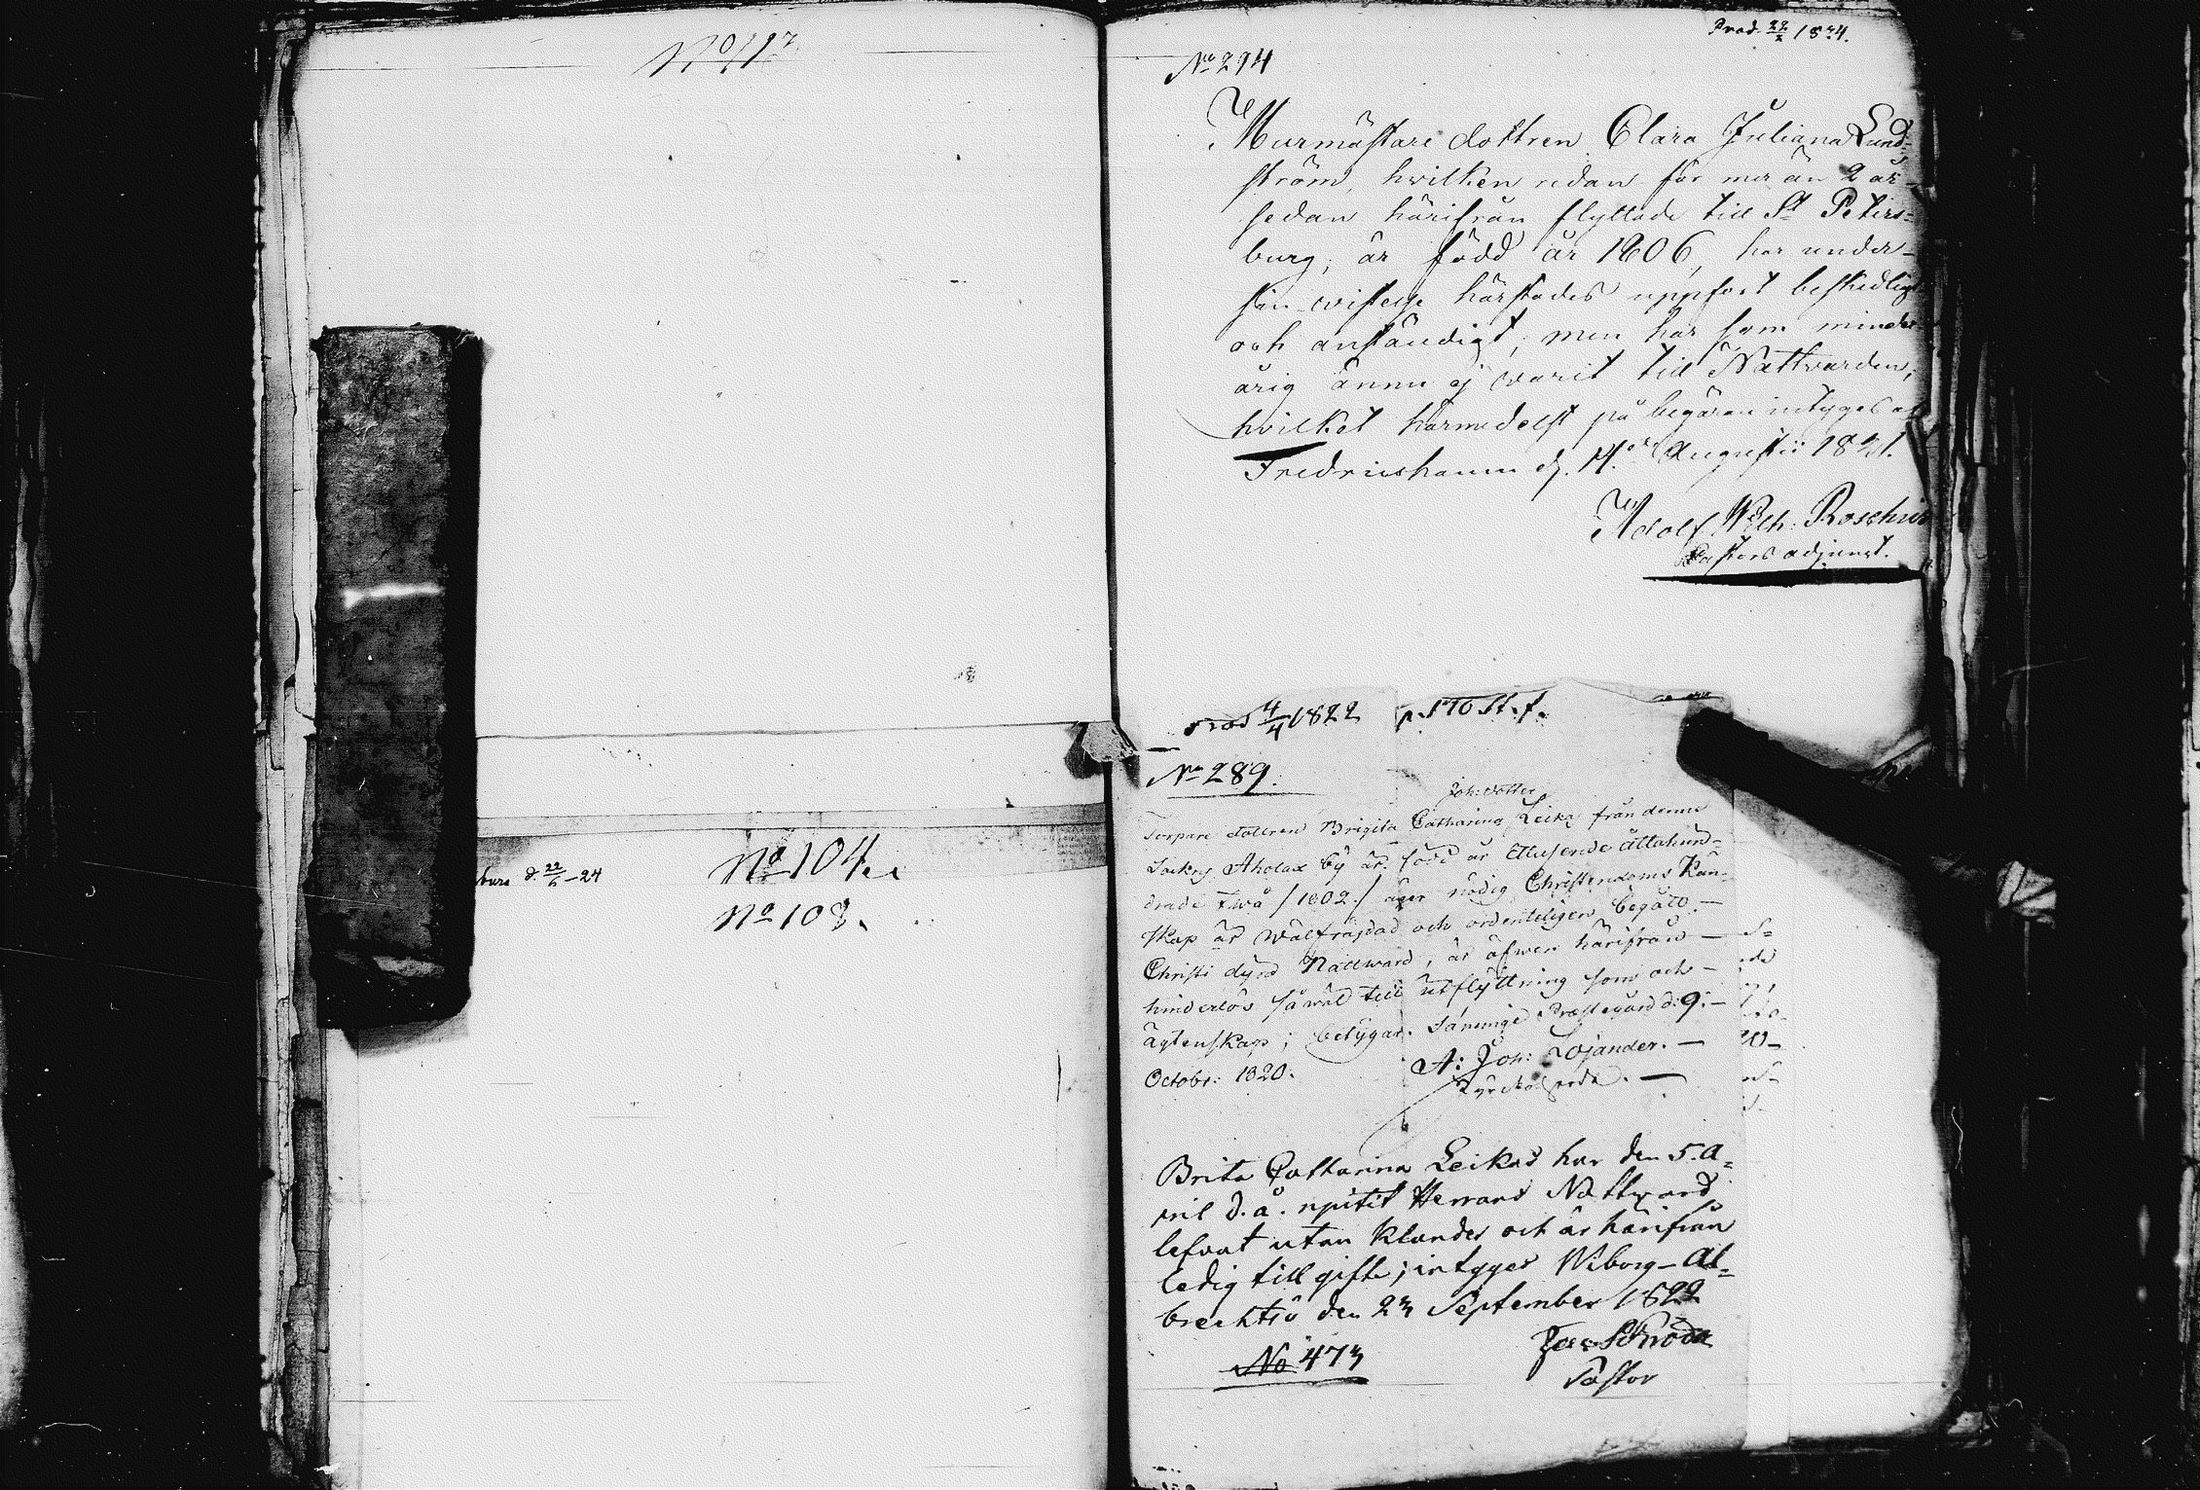 No 117
bure d. 22/6 – 24
No 104.
No 108.
Prod. 22/2 1824.
No 294
Murmästare dottren Clara Juliana Lund=
ström, hwilken redan för mer än 2 år
sedan härifrån flyttade till St Peters=
burg, är född år 1806, har under
sin wistelse härstädes uppfört beskedligt
och anständigt, men har som minder=
årig ännu ej warit till Nattvarden,
hvilket härmedelst på begäran intygas af
Fredricshamn d. 14 Augustii 1821.
Adolf Wilh: Roschier
Pastors adjunct.
prod 4/4 1822 p. 170 St. f.
No 289.
Joh: dotter
Torpare dottren Brigita Catharina Leika från denne
Sockns Ahola by är född år Ettusende åttahun=
drade twå /1802./ äger nödig Christendoms Kun=
skap är wälfräjdad och ordenteligen begått –
Christi dyra Nattward, är äfwen härifrån –
hinderlös såwäl till utflyttning som och –
ägtenskap; betygar. Prästegård d: 9: –
Octobr: 1820.
A: Joh: Zojander. –
Brita Catharina Leikas har den 5. A=
pril d. å. niutit Herrans Nattward
lefvat utan klander och är härifrån
ledig till gifte; intygas Wiborg – Al=
brechtsö den 23 September 1822
Pastor
No 473